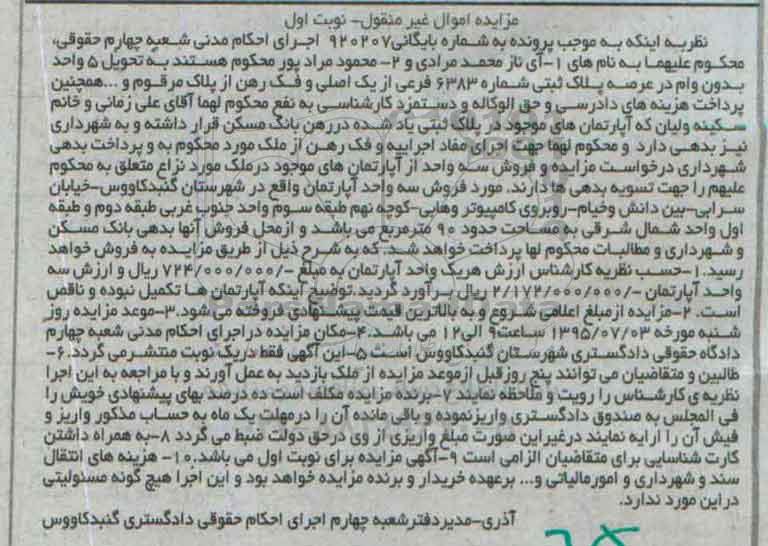 مزایده اموال غیر منقول- نوبت اول
نظربه اینکه به موجب پرونده به شماره بایگانی۹۲۰۲۰۷ اجرای احکام مدنی شعبه چهارم حقوقی،
محکوم علیهما به نام های ۱-آی ناز محمد مرادی و ۲- محمود مراد پور محکوم هستند به تحویل ۵ واحد
بدون وام در عرصه پلاک ثبتی شماره ۶۳۸۳ فرعی از یک اصلی و فک رهن از پلاک مرقوم و ...همچنین
پرداخت هزینه های دادرسی و حق الوکاله و دستمزد کارشناسی به نفع محکوم لهما آقای علی زمانی و خانم
سکینه ولیان که آپارتمان های موجود در پلاک ثبتی یاد شده دررهن بانک مسکن قرار داشته و به شهرداری
نیز بدهی دارد و محکوم لهما جهت اجرای مفاد اجراییه و فک رهن از ملک مورد محکوم به و پرداخت بدهی
شهرداری درخواست مزایده و فروش سه واحد از آپارتمان های موجود درملک مورد نزاع متعلق به محکوم
علیهم را جهت تسویه بدهی ها دارند. مورد فروش سه واحد آپارتمان واقع در شهرستان گنبدکاووس-خیابان
سرابی-بین دانش وخیام-روبروی کامپیوتر وهابی-کوچه نهم طبقه سوم واحد جنوب غربی طبقه دوم و طبقه
اول واحد شمال شرقی به مساحت حدود ۹۰ مترمربع می باشد و ازمحل فروش آنها بدهی بانک مسکن
و شهرداری و مطالبات محکوم لها پرداخت خواهد شد. که به شرح ذیل از طریق مزایده به فروش خواهد
رسید.۱-حسب نظریه کارشناس ارزش هریک واحد آپارتمان به مبلغ -/۷۲۴/۰۰۰/۰۰۰ ریال و ارزش سه
واحد آپارتمان -/۲/۱۷۲/۰۰۰/۰۰۰ ریال برآورد گردید.توضیح اینکه آپارتمان ها تکمیل نبوده و ناقص
است. ۲-مزایده ازمبلغ اعلامی شروع و به بالاترین قیمت پیشنهادی فروخته می شود.۳-موعد مزایده روز
شنبه مورخه ۱۳۹۵/۰۷/۰۳ ساعت۹ الی۱۲ می باشد.۴-مکان مزایده دراجرای احکام مدنی شعبه چهارم
دادگاه حقوقی دادگستری شهرستان گنبدکاووس است ۵-این آگهی فقط دریک نوبت منتشرمی گردد.۶-
طالبین و متقاضیان می توانند پنج روزقبل ازموعد مزایده از ملک بازدید به عمل آورند و با مراجعه به این اجرا
نظریه ی کارشناس را رویت و ملاحظه نمایند ۷-برنده مزایده مکلف است ده درصد بهای پیشنهادی خویش را
فی المجلس به صندوق دادگستری واریزنموده و باقی مانده آن را درمهلت یک ماه به حساب مذکور واریز و
فیش آن را ارایه نمایند درغیراین صورت مبلغ واریزی از وی درحق دولت ضبط می گردد ۸-به همراه داشتن
کارت شناسایی برای متقاضیان الزامی است ۹-آگهی مزایده برای نوبت اول می باشد.۱۰- هزینه های انتقال
سند و شهرداری و امورمالیاتی و... برعهده خریدار و برنده مزایده خواهد بود و این اجرا هیچ گونه مسئولیتی
دراین مورد ندارد.
آذری-مدیردفترشعبه چهارم اجرای احکام حقوقی دادگستری گنبدکاووس